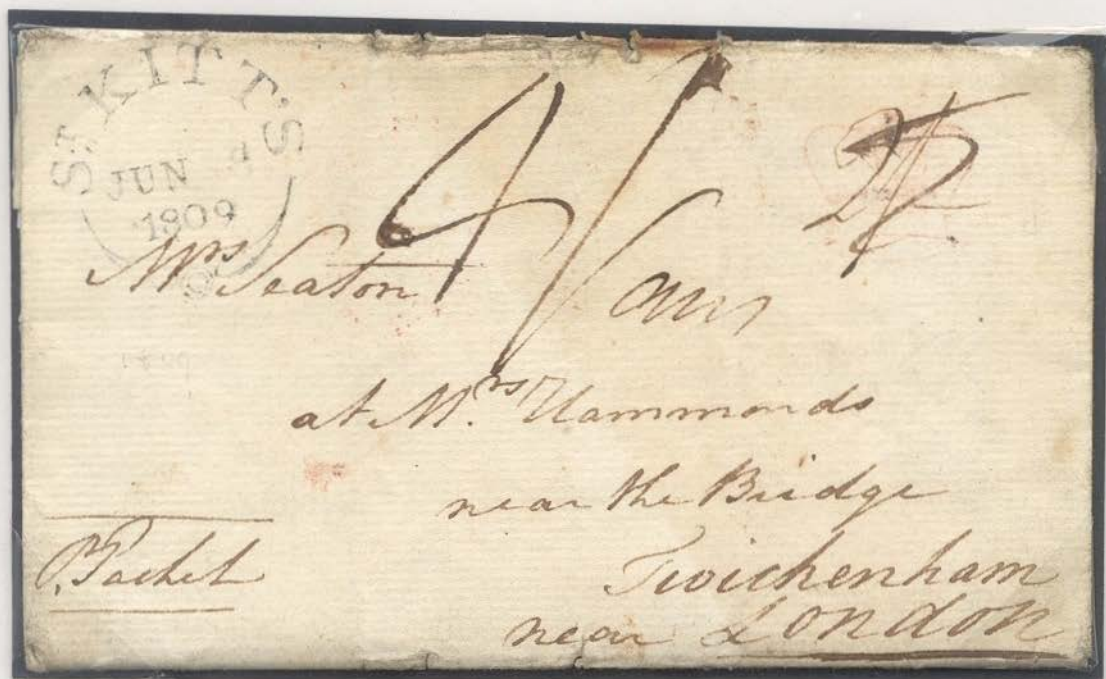 St. KITT'S
JUN 4
1809
4/
2/2
Mrs Seaton
at Mrs Hammonds
near the Bridge
Twickenham
near London
P. Packet